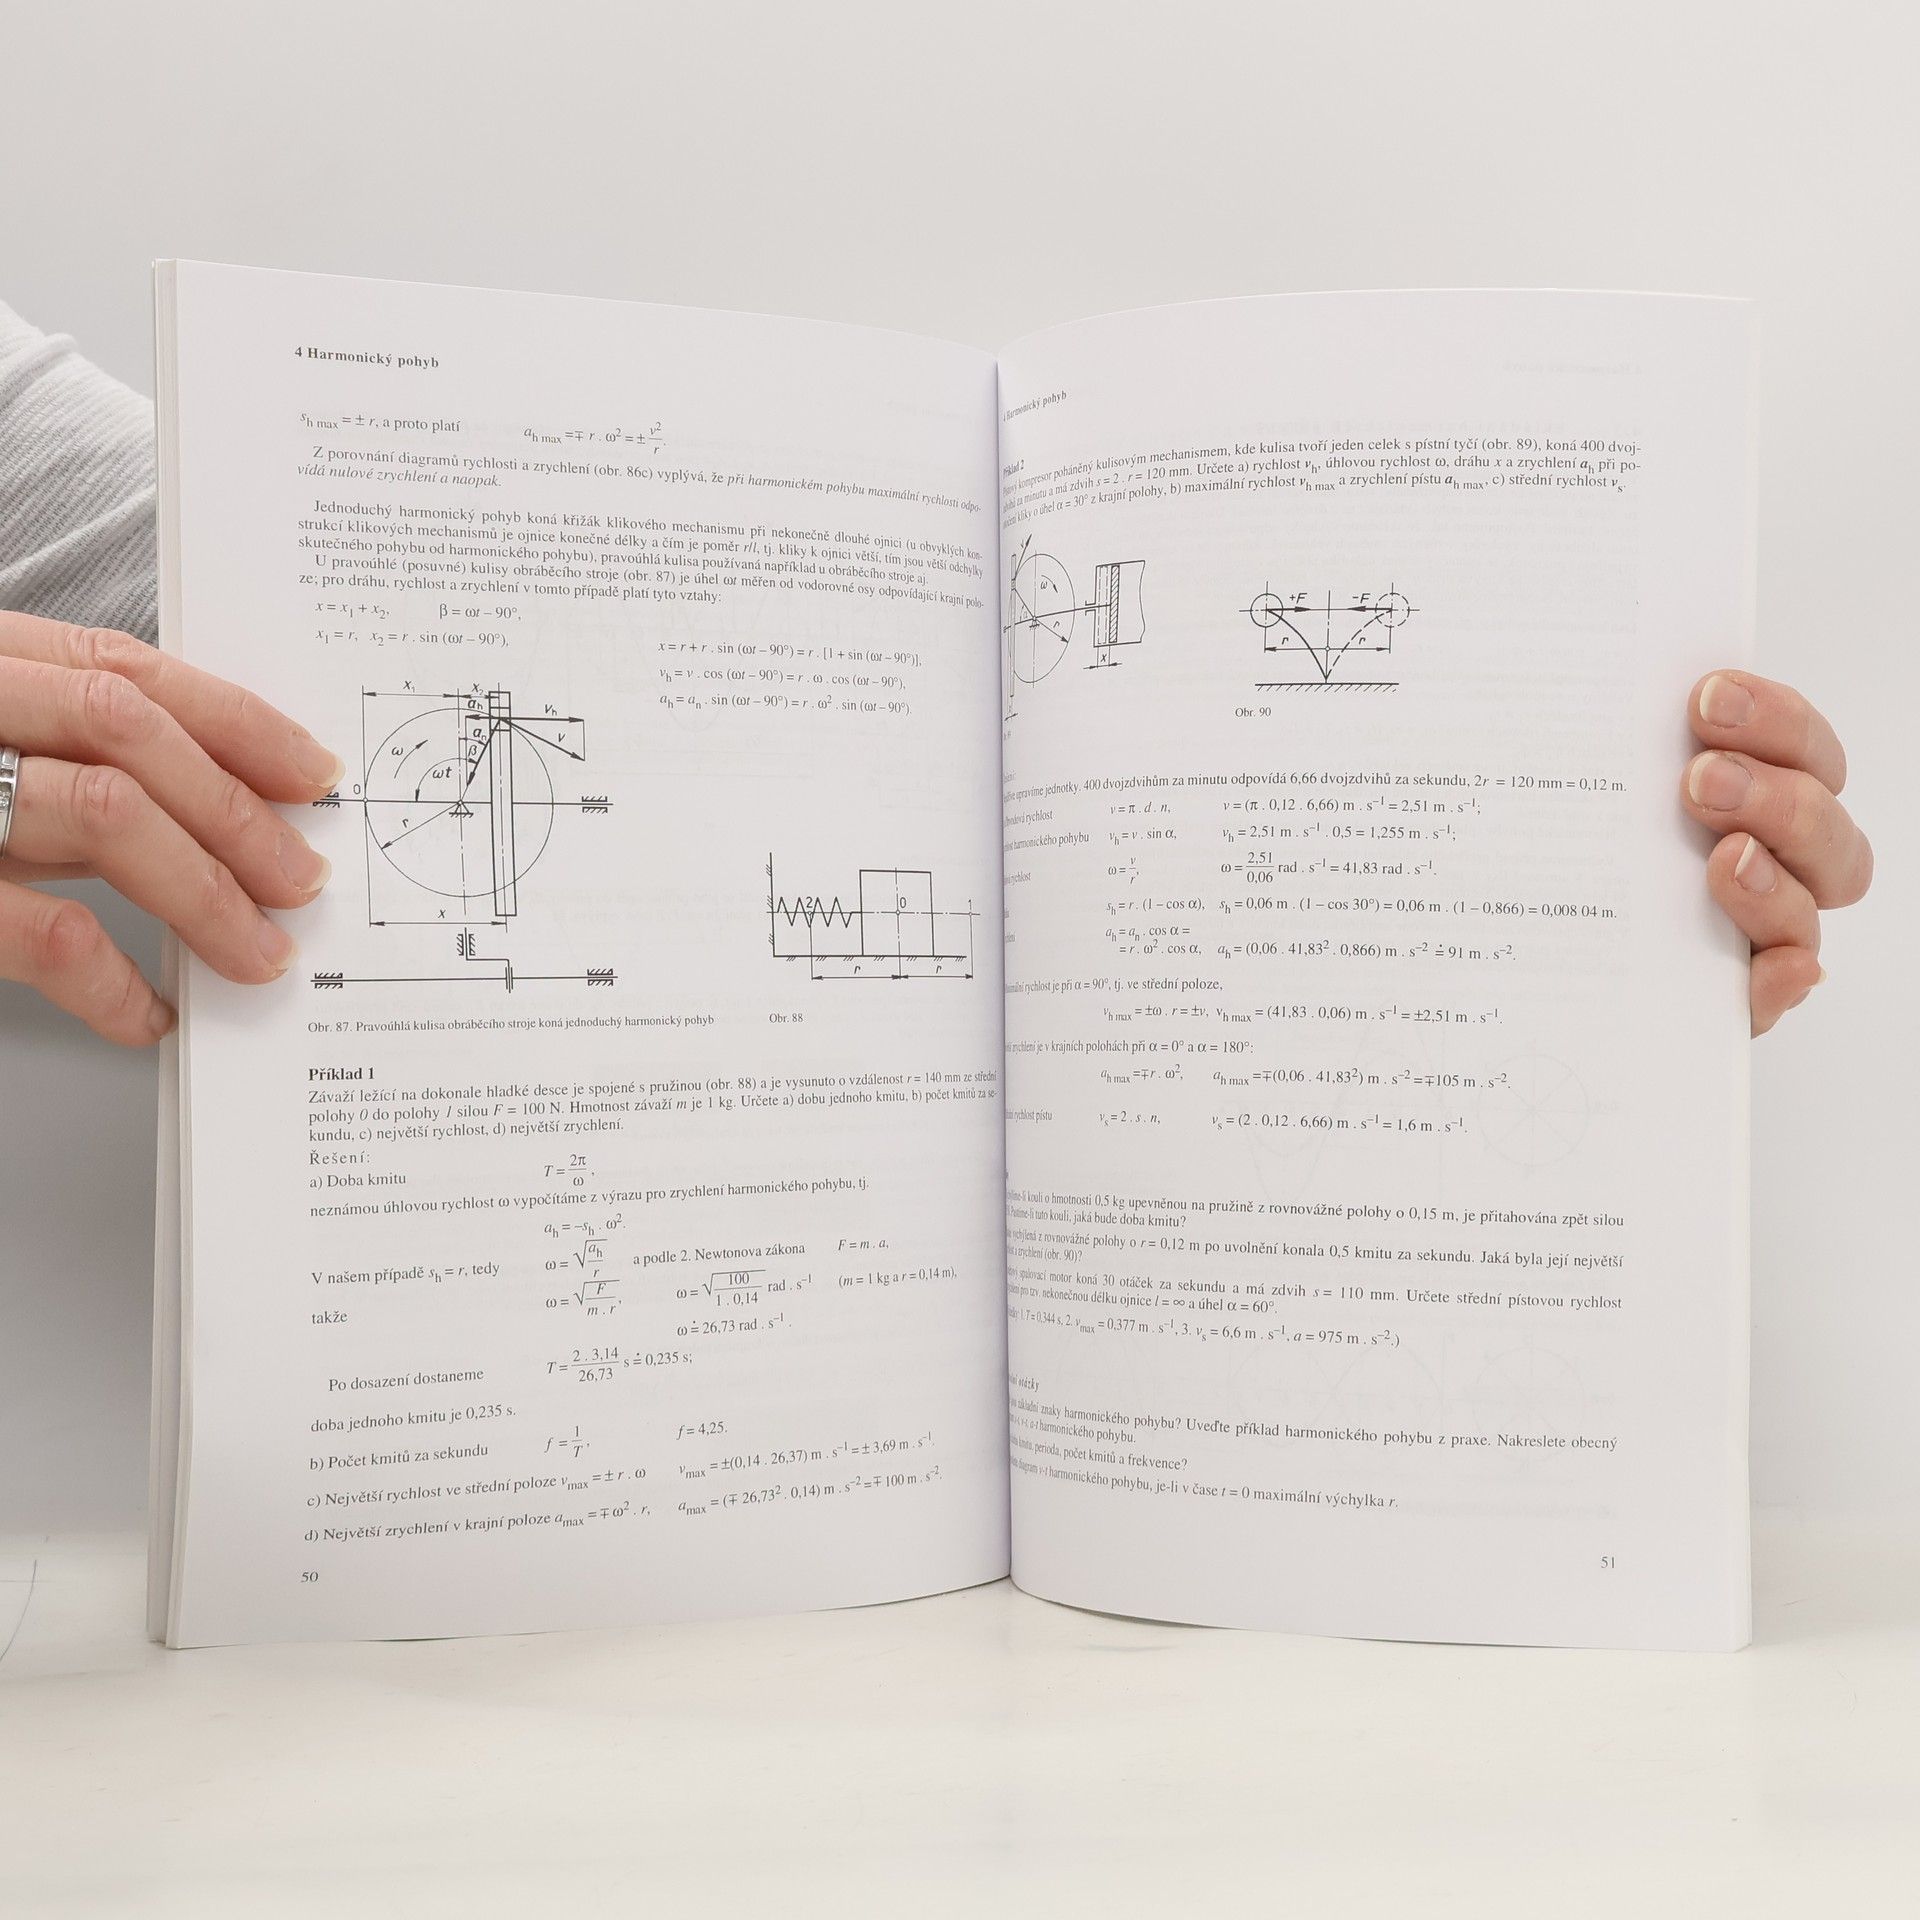 4 Harmonický pohyb
s_h max = ± r, a proto platí
a_h max = ∓ r . ω² = ± v²/r.
Z porovnání diagramů rychlosti a zrychlení (obr. 86c) vyplývá, že při harmonickém pohybu maximální rychlosti odpo-
vídá nulové zrychlení a naopak.
Jednoduchý harmonický pohyb koná křižák klikového mechanismu při nekonečně dlouhé ojnici (u obvyklých kon-
strukcí klikových mechanismů je ojnice konečné délky a čím je poměr r/l, tj. kliky k ojnici větší, tím jsou větší odchylky
skutečného pohybu od harmonického pohybu), pravoúhlá kulisa používaná například u obráběcího stroje aj.
U pravoúhlé (posuvné) kulisy obráběcího stroje (obr. 87) je úhel ωt měřen od vodorovné osy odpovídající krajní polo-
ze; pro dráhu, rychlost a zrychlení v tomto případě platí tyto vztahy:
x = x₁ + x₂, β = ωt – 90°,
x₁ = r, x₂ = r . sin (ωt – 90°),
x = r + r . sin (ωt – 90°) = r . [1 + sin (ωt – 90°)],
v_h = v . cos (ωt – 90°) = r . ω . cos (ωt – 90°),
a_h = a_n . sin (ωt – 90°) = r . ω² . sin (ωt – 90°).
x₁ x₂
a_h v_h
a_n v
ω β
ωt
0
r
x
2 0 1
r r
Obr. 87. Pravoúhlá kulisa obráběcího stroje koná jednoduchý harmonický pohyb
Obr. 88
Příklad 1
Závaží ležící na dokonale hladké desce je spojené s pružinou (obr. 88) a je vysunuto o vzdálenost r = 140 mm ze střední
polohy 0 do polohy 1 silou F = 100 N. Hmotnost závaží m je 1 kg. Určete a) dobu jednoho kmitu, b) počet kmitů za se-
kundu, c) největší rychlost, d) největší zrychlení.
Řešení:
a) Doba kmitu T = 2π/ω,
neznámou úhlovou rychlost ω vypočítáme z výrazu pro zrychlení harmonického pohybu, tj.
a_h = –s_h . ω².
V našem případě s_h = r, tedy ω = √(a_h/r) a podle 2. Newtonova zákona F = m . a,
takže ω = √(F/(m . r)), ω = √(100/(1 . 0,14)) rad . s⁻¹ (m = 1 kg a r = 0,14 m),
ω ≐ 26,73 rad . s⁻¹.
Po dosazení dostaneme T = (2 . 3,14)/26,73 s ≐ 0,235 s;
doba jednoho kmitu je 0,235 s.
b) Počet kmitů za sekundu f = 1/T, f = 4,25.
c) Největší rychlost ve střední poloze v_max = ± r . ω v_max = ±(0,14 . 26,37) m . s⁻¹ = ± 3,69 m . s⁻¹.
d) Největší zrychlení v krajní poloze a_max = ∓ ω² . r, a_max = (∓ 26,73² . 0,14) m . s⁻² = ∓ 100 m . s⁻².
50
Harmonický pohyb
2
kompresor poháněný kulisovým mechanismem, kde kulisa tvoří jeden celek s pístní tyčí (obr. 89), koná 400 dvoj-
za minutu a má zdvih s = 2 . r = 120 mm. Určete a) rychlost v_h, úhlovou rychlost ω, dráhu x a zrychlení a_h při po-
kliky o úhel α = 30° z krajní polohy, b) maximální rychlost v_h max a zrychlení pístu a_h max, c) střední rychlost v_s.
ω
r
x
+F –F
r r
Obr. 90
upravíme jednotky. 400 dvojzdvihům za minutu odpovídá 6,66 dvojzdvihů za sekundu, 2r = 120 mm = 0,12 m.
rychlost v = π . d . n, v = (π . 0,12 . 6,66) m . s⁻¹ = 2,51 m . s⁻¹;
harmonického pohybu v_h = v . sin α, v_h = 2,51 m . s⁻¹ . 0,5 = 1,255 m . s⁻¹;
rychlost ω = v/r, ω = 2,51/0,06 rad . s⁻¹ = 41,83 rad . s⁻¹.
s_h = r . (1 – cos α), s_h = 0,06 m . (1 – cos 30°) = 0,06 m . (1 – 0,866) = 0,008 04 m.
a_h = a_n . cos α =
= r . ω² . cos α, a_h = (0,06 . 41,83² . 0,866) m . s⁻² ≐ 91 m . s⁻².
rychlost je při α = 90°, tj. ve střední poloze,
v_h max = ±ω . r = ±v, v_h max = (41,83 . 0,06) m . s⁻¹ = ±2,51 m . s⁻¹.
zrychlení je v krajních polohách při α = 0° a α = 180°:
a_h max = ∓r . ω², a_h max = ∓(0,06 . 41,83²) m . s⁻² = ∓105 m . s⁻².
rychlost pístu v_s = 2 . s . n, v_s = (2 . 0,12 . 6,66) m . s⁻¹ = 1,6 m . s⁻¹.
kouli o hmotnosti 0,5 kg upevněnou na pružině z rovnovážné polohy o 0,15 m, je přitahována zpět silou
tuto kouli, jaká bude doba kmitu?
z rovnovážné polohy o r = 0,12 m po uvolnění konala 0,5 kmitu za sekundu. Jaká byla její největší
a zrychlení (obr. 90)?
spalovací motor koná 30 otáček za sekundu a má zdvih s = 110 mm. Určete střední pístovou rychlost
pro tzv. nekonečnou délku ojnice l = ∞ a úhel α = 60°.
1. T = 0,344 s, 2. v_max = 0,377 m . s⁻¹, 3. v_s = 6,6 m . s⁻¹, a = 975 m . s⁻².)
otázky
základní znaky harmonického pohybu? Uveďte příklad harmonického pohybu z praxe. Nakreslete obecný
harmonického pohybu.
perioda, počet kmitů a frekvence?
diagram v-t harmonického pohybu, je-li v čase t = 0 maximální výchylka r.
51